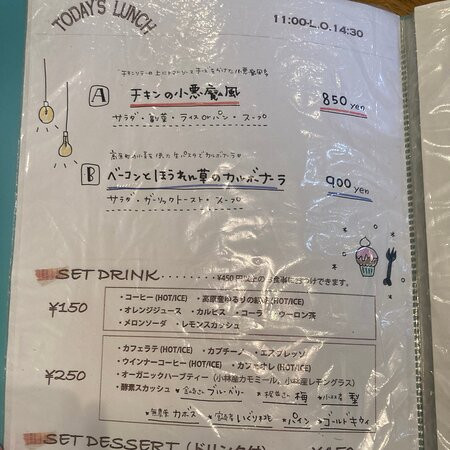 TODAY'S LUNCH
11:00-L.O.14:30
A チキンの小悪魔風 850 yen
サラダ・副菜・ライス or パン・スープ
B ベーコンとほうれん草のカルボナーラ 900 yen
サラダ・ガーリックトースト・スープ
SET DRINK
¥450以上のお食事におつけできます。
¥150
・コーヒー (HOT/ICE) ・高原産ゆるりの紅茶(HOT/ICE)
・オレンジジュース ・カルピス ・コーラ ・ウーロン茶
・メロンソーダ ・レモンスカッシュ
¥250
・カフェラテ (HOT/ICE) ・カプチーノ ・エスプレッソ
・ウインナーコーヒー (HOT/ICE) ・カフェオレ (HOT/ICE)
・オーガニックハーブティー (小林産カモミール、小林産レモングラス)
・酵素スカッシュ ブルーベリー 梅 梨
無農薬 カボス パイン ゴールドキウイ
SET DESSERT (ドリンク付)